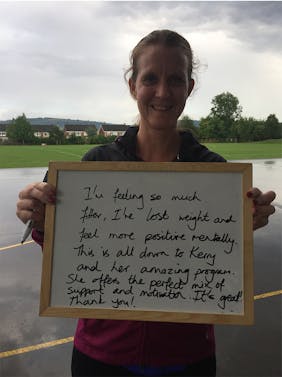 I'm feeling so much
fitter, I've lost weight and
feel more positive mentally.
This is all down to Kerry
and her amazing program.
She offers the perfect mix of
support and motivation. It's great!
Thank you!